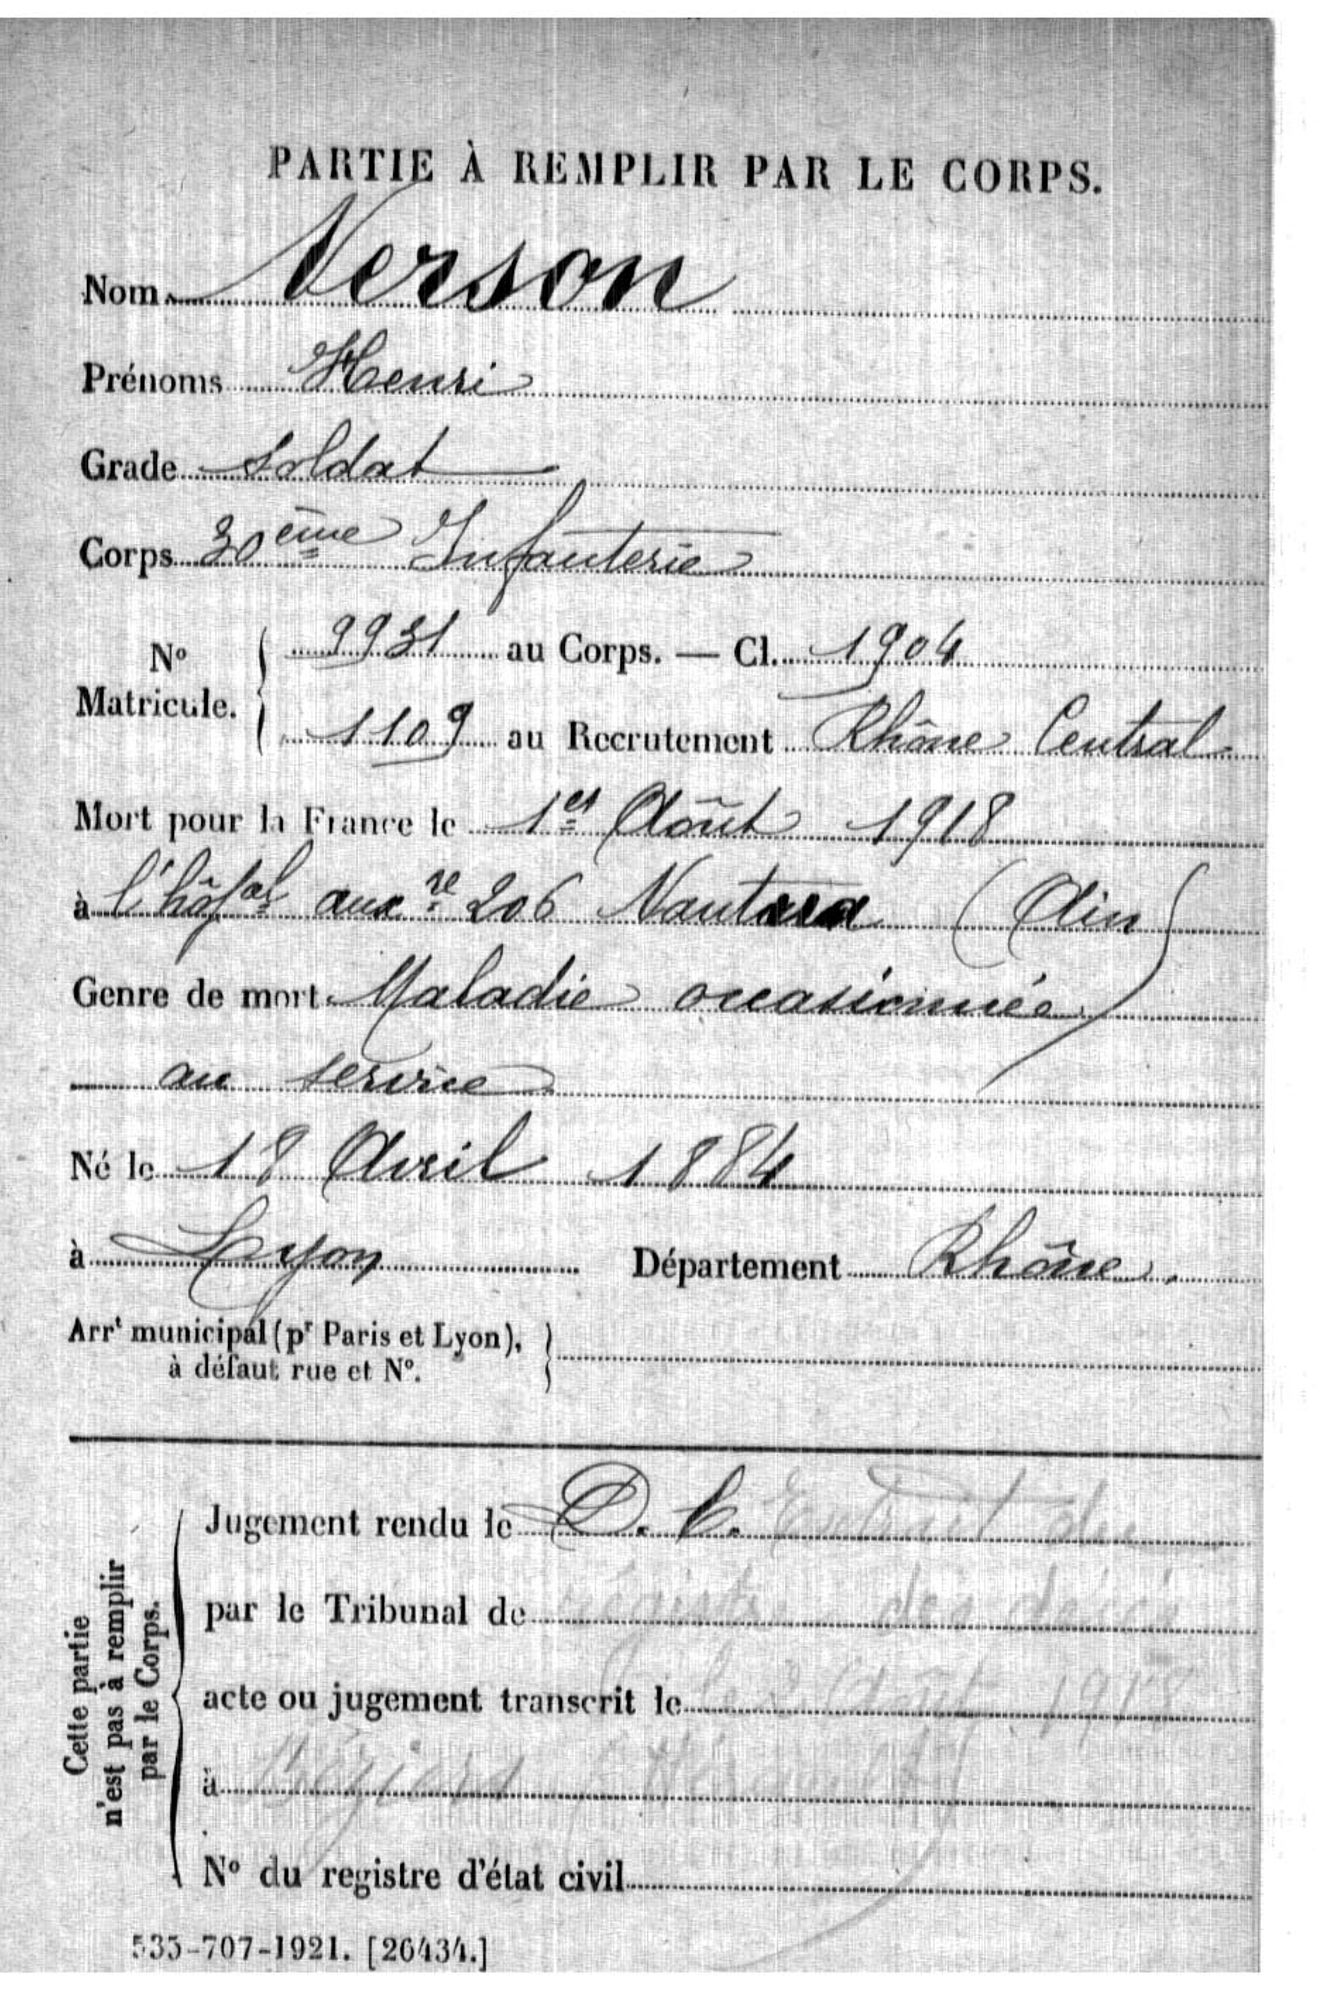 PARTIE À REMPLIR PAR LE CORPS.
Nom Verson
Prénoms Henri
Grade soldat
Corps 30ème Infanterie
No Matricule. 9931 au Corps. — Cl. 1904
1109 au Recrutement Rhône Central
Mort pour la France le 1er Août 1918
à l'hôpal auxre 206 Nantua (Ain)
Genre de mort Maladie occasionnée
au service
Né le 18 Avril 1884
à Lyon Département Rhône.
Arrt municipal (pr Paris et Lyon),
à défaut rue et No.
Cette partie
n'est pas à remplir
par le Corps.
Jugement rendu le D. C. Extrait du
par le Tribunal de registre des décès
acte ou jugement transcrit le le 2 Août 1918
à Béziers (Hérault)
No du registre d'état civil
535-707-1921. [26434.]